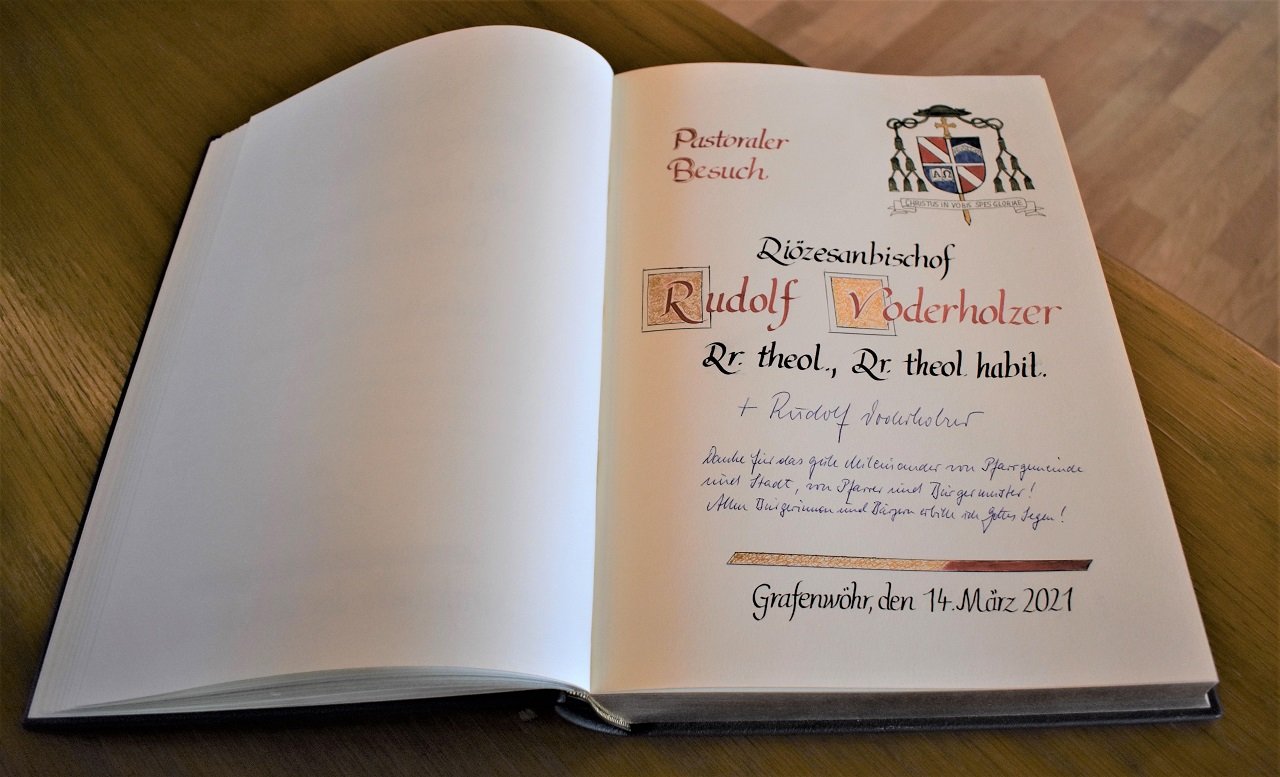 Pastoraler
Besuch
ΑΩ
CHRISTUS IN VOBIS SPES GLORIAE
Diözesanbischof
Rudolf Voderholzer
Dr. theol., Dr. theol habil.
+ Rudolf Voderholzer
Danke für das gute Miteinander von Pfarrgemeinde
und Stadt, von Pfarrer und Bürgermeister!
Allen Bürgerinnen und Bürgern erbitte ich Gottes Segen!
Grafenwöhr, den 14. März 2021